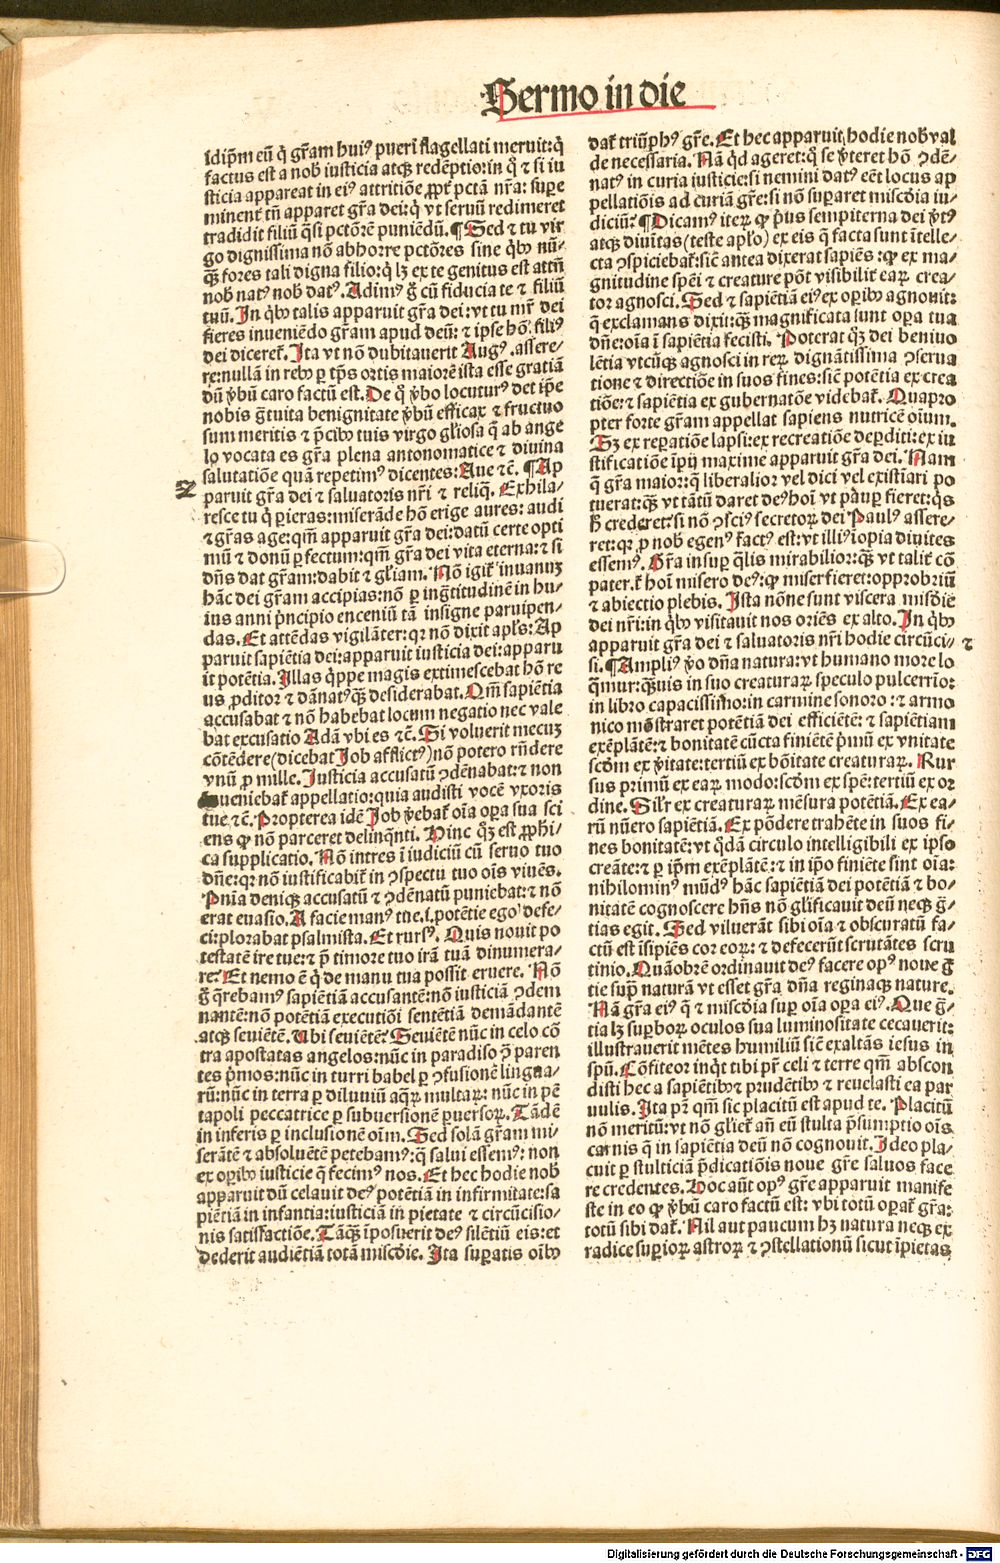 Sermo in die
idip̄m eū q̄ gr̄am huiꝰ pueri flagellati meruit: q̄
factus est a nob̄ iusticia atqꝫ redēptio: in q̊ ⁊ si iu
sticia appareat in eiꝰ attritiōe ꝓpt̄ pctā nr̄a: supe
minent tn̄ apparet gr̄a dei: q̄ vt seruū redimeret
tradidit filiū q̄si pctōrē puniēdū. ¶ Sed ⁊ tu vir
go dignissima nō abhorre pctōres sine qͥbꝰ nū⸗
q̄ꝫ fores tali digna filio: q̄ lꝫ ex te genitus est attn̄
nob̄ natꝰ nob̄ datꝰ. Adimꝰ g̊ cū fiducia te ⁊ filiū
tuū. In qͥbꝰ talis apparuit gr̄a dei: vt tu mr̄ dei
fieres inueniēdo gr̄am apud deū: ⁊ ipse hōi filiꝰ
dei dicereꝉ. Ita vt nō dubitauerit Augꝰ. assere⸗
re: nullā in rebꝰ ꝑ tp̄s ortis maiorē ista esse gratiā
dū ꝟbū caro factū est. De q̊ ꝟbo locuturꝰ det ip̄e
nobis ḡtuita benignitate ꝟbū efficax ⁊ fructuo
sum meritis ⁊ p̄cibꝰ tuis virgo gl̄iosa q̄ ab ange
lo vocata es gr̄a plena antonomatice ⁊ diuina
salutatiōe quā repetimꝰ dicentes: Aue ⁊c̄. ¶ Ap
paruit gr̄a dei ⁊ saluatoris nr̄i ⁊ reliq̄. Exhila⸗
resce tu q̄ ꝑieras: miserāde hō erige aures: audi
⁊ gr̄as age: qm̄ apparuit gr̄a dei: datū certe opti
mū ⁊ donū ꝑfectum: qm̄ gr̄a dei vita eterna: ⁊ si
dn̄s dat gr̄am: dabit ⁊ gl̄iam. Nō igiꝉ in uanuꝫ
hāc dei gr̄am accipias: nō ꝑ inḡtitudinē in hu⸗
ius anni pͥncipio enceniū tā insigne paruipen⸗
das. Et attēdas vigilāter: qꝛ nō dixit apl̄s: Ap
paruit sapiētia dei: apparuit iusticia dei: apparu
it potētia. Illas q̄ppe magis extimescebat hō re
us ꝓditor ⁊ dānatꝰ q̄ꝫ desiderabat. Qm̄ sapiētia
accusabat ⁊ nō habebat locum negatio nec vale
bat excusatio Adā vbi es ⁊c̄. Si voluerit mecuꝫ
cōtēdere (dicebat Job afflictꝰ) nō potero rn̄dere
vnū ꝓ mille. Iusticia accusatū ꝯdēnabat: ⁊ non
inueniebaꝉ appellatio: quia audisti vocē vxoris
tue ⁊c̄. Propterea idē Job ꝟebaꝉ oīa oꝑa sua sci
ens ꝙ nō parceret delinq̄nti. Hinc qꝫ est ꝓphi⸗
ca supplicatio. Nō intres ī iudiciū cū seruo tuo
dn̄e: qꝛ nō iustificabiꝉ in ꝯspectu tuo oīs viuēs.
Pn̄ia deniqꝫ accusatū ⁊ ꝯdēnatū puniebat: ⁊ nō
erat euasio. A facie manꝰ tue .i. potētie ego defe⸗
ci: plorabat psalmista. Et rursꝰ. Quis nouit po
testatē ire tue: ⁊ p̄ timore tuo irā tuā dinumera⸗
re? Et nemo ē q̄ de manu tua possīt eruere. Nō
g̊ q̄rebamꝰ sapiētiā accusantē: nō iusticiā ꝯdem
nantē: nō potētiā executiōi sentētiā demādantē
atqꝫ seuiētē. Ubi seuiētē? Seuiētē nūc in celo cō
tra apostatas angelos: nūc in paradiso ꝯ̄ paren
tes pͥmos: nūc in turri babel ꝑ ꝯfusionē lingua⸗
rū: nūc in terra ꝑ diluuiū aq̄ꝝ multaꝝ: nūc in pē
tapoli peccatrice ꝑ subuersionē ꝑuersoꝝ. Tādē
in inferis ꝑ inclusionē oīm. Sed solā gr̄am mi⸗
serātē ⁊ absoluētē petebamꝰ: q̄ salui essemꝰ: non
ex oꝑibꝰ iusticie q̄ fecimꝰ nos. Et hec hodie nob̄
apparuit dū celauit deꝰ potētiā in infirmitate: sa
piētiā in infantia: iusticiā in pietate ⁊ circūcisio⸗
nis satisfactiōe. Tāq̄ꝫ īposuerit deꝰ silētiū eis: et
dederit audiētiā totā miscd̄ie. Ita suꝑatis oībꝰ
daꝉ triūphꝰ gr̄e. Et hec apparuit hodie nob̄ val
de necessaria. Nā q̄d ageret: q̊ se ꝟteret hō ꝯdē⸗
natꝰ in curia iusticie: si nemini datꝰ eēt locus ap
pellatiōis ad curiā gr̄e: si nō suꝑaret miscd̄ia iu⸗
diciū? ¶ Dicamꝰ iteꝝ ꝙ pͥus sempiterna dei ꝟtꝰ
atqꝫ diuītas (teste apl̄o) ex eis q̄ facta sunt ītelle⸗
cta ꝯspiciebaꝉ: sīc antea dixerat sapiēs: ꝙ ex ma⸗
gnitudine spēi ⁊ creature pōt visibiliꝉ eaꝝ crea⸗
tor agnosci. Sed ⁊ sapiētiā eiꝰ ex oꝑibꝰ agnouit:
q̄ exclamans dixit: q̄ꝫ magnificata sunt oꝑa tua
dn̄e: oīa ī sapiētia fecisti. Poterat qꝫ dei beniuo
lētia vtcūqꝫ agnosci in reꝝ dignātissima ꝯserua
tione ⁊ directiōe in suos fines: sīc potētia ex crea
tiōe: ⁊ sapiētia ex gubernatōe videbaꝉ. Quapro
pter forte gr̄am appellat sapiens nutricē oīum.
Sꝫ ex reꝑatiōe lapsi: ex recreatiōe deꝑditi: ex iu
stificatiōe īpij maxime apparuit gr̄a dei. Nam
q̄ gr̄a maior: q̄ liberalior vel dici vel existīari po
tuerat: q̄ꝫ vt tātū daret deꝰ hoī vt pauꝑ fieret: q̄s
h̄ crederet: si nō ꝯsciꝰ secretoꝝ dei Paulꝰ assere⸗
ret: qꝛ ꝓ nob̄ egenꝰ factꝰ est: vt illiꝰ īopia diuites
essemꝰ. Gr̄a insuꝑ q̄lis mirabilior: q̄ꝫ vt taliꝉ cō
pateret̄ hoī misero deꝰ: ꝙ miser fieret: opprobriū
⁊ abiectio plebis. Ista nōne sunt viscera miscd̄ie
dei nr̄i: in qͥbꝰ visitauit nos oriēs ex alto. In qͥbꝰ
apparuit gr̄a dei ⁊ saluatoris nr̄i hodie circūci⸗
si. ¶ Ampliꝰ ꝟo dn̄a natura: vt humano more lo
q̄mur: q̄ꝫuis in suo creaturaꝝ speculo pulcerrīo:
in libro capacissimo: in carmine sonoro: ⁊ armo
nico mōstraret potētiā dei efficiētē: ⁊ sapiētiam
exēplātē: ⁊ bonitatē cūcta finiētē pͥmū ex vnitate
scd̄m ex ꝟitate: tertiū ex bōitate creaturaꝝ. Rur
sus primū ex eaꝝ modo: scd̄m ex spē: tertiū ex or
dine. Silr̄ ex creaturaꝝ mēsura potētiā. Ex ea⸗
rū nūero sapiētiā. Ex pōdere trahēte in suos fi⸗
nes bonitatē: vt q̄dā circulo intelligibili ex ipso
creāte: ⁊ ꝑ ip̄m exēplātē: ⁊ in ip̄o finiēte sint oīa:
nihilominꝰ mūdꝰ hāc sapiētiā dei potētiā ⁊ bo⸗
nitatē cognoscere hn̄s nō gl̄ificauit deū neqꝫ ḡ⸗
tias egit. Sed viluerāt sibi oīa ⁊ obscuratū fa⸗
ctū est īsipiēs cor eoꝝ: ⁊ defecerūt scrutātes scru
tinio. Quāobrē ordinauit deꝰ facere opꝰ noue ḡ
tie supͣ naturā vt esset gr̄a dn̄a reginaqꝫ nature.
Nā gr̄a eiꝰ q̄ ⁊ miscd̄ia suꝑ oīa oꝑa eiꝰ. Que ḡ⸗
tia lꝫ suꝑboꝝ oculos sua luminositate cecauerit:
illustrauerit mētes humiliū sīc exaltās iesus in
spū. Cōfiteor inq̄t tibi pr̄ celi ⁊ terre qm̄ abscon
disti hec a sapiētibꝰ ⁊ prudētibꝰ ⁊ reuelasti ea par
uulis. Ita pr̄ qm̄ sic placitū est apud te. Placitū
nō meritū: vt nō gl̄ieꝉ an̄ eū stulta p̄sumptio oīs
carnis q̄ in sapiētia deū nō cognouit. Ideo pla⸗
cuit ꝑ stulticiā p̄dicatiōis noue gr̄e saluos face
re credentes. Hoc aūt opꝰ gr̄e apparuit manife
ste in eo ꝙ ꝟbū caro factū est: vbi totū oꝑaꝉ gr̄a:
totū sibi daꝉ. Nil aut paucum hꝫ natura neqꝫ ex
radice suꝑioꝝ astroꝝ ⁊ ꝯstellationū sicut īpietas
Digitalisierung gefördert durch die Deutsche Forschungsgemeinschaft - DFG